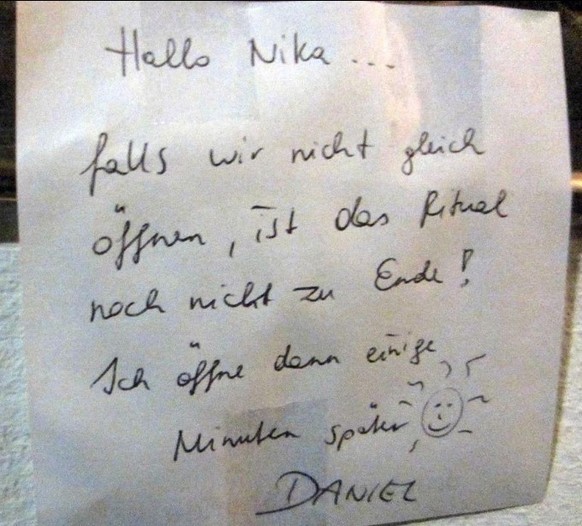 Hallo Nika...
falls wir nicht gleich
öffnen, ist das Ritual
noch nicht zu Ende!
Ich öffne dann einige
Minuten später
DANIEL